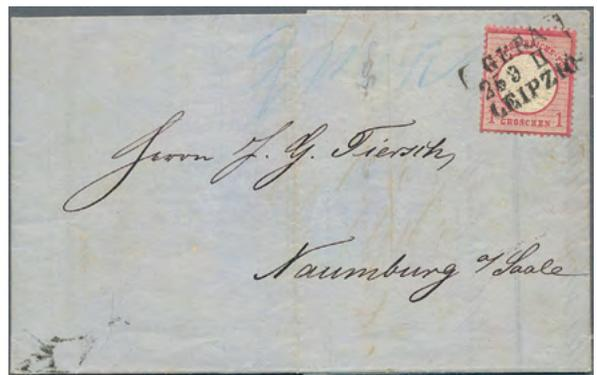 GERA
26 3 II
LEIPZIG
1 GROSCHEN 1
Herrn J. G. Tiersch,
Naumburg a/Saale